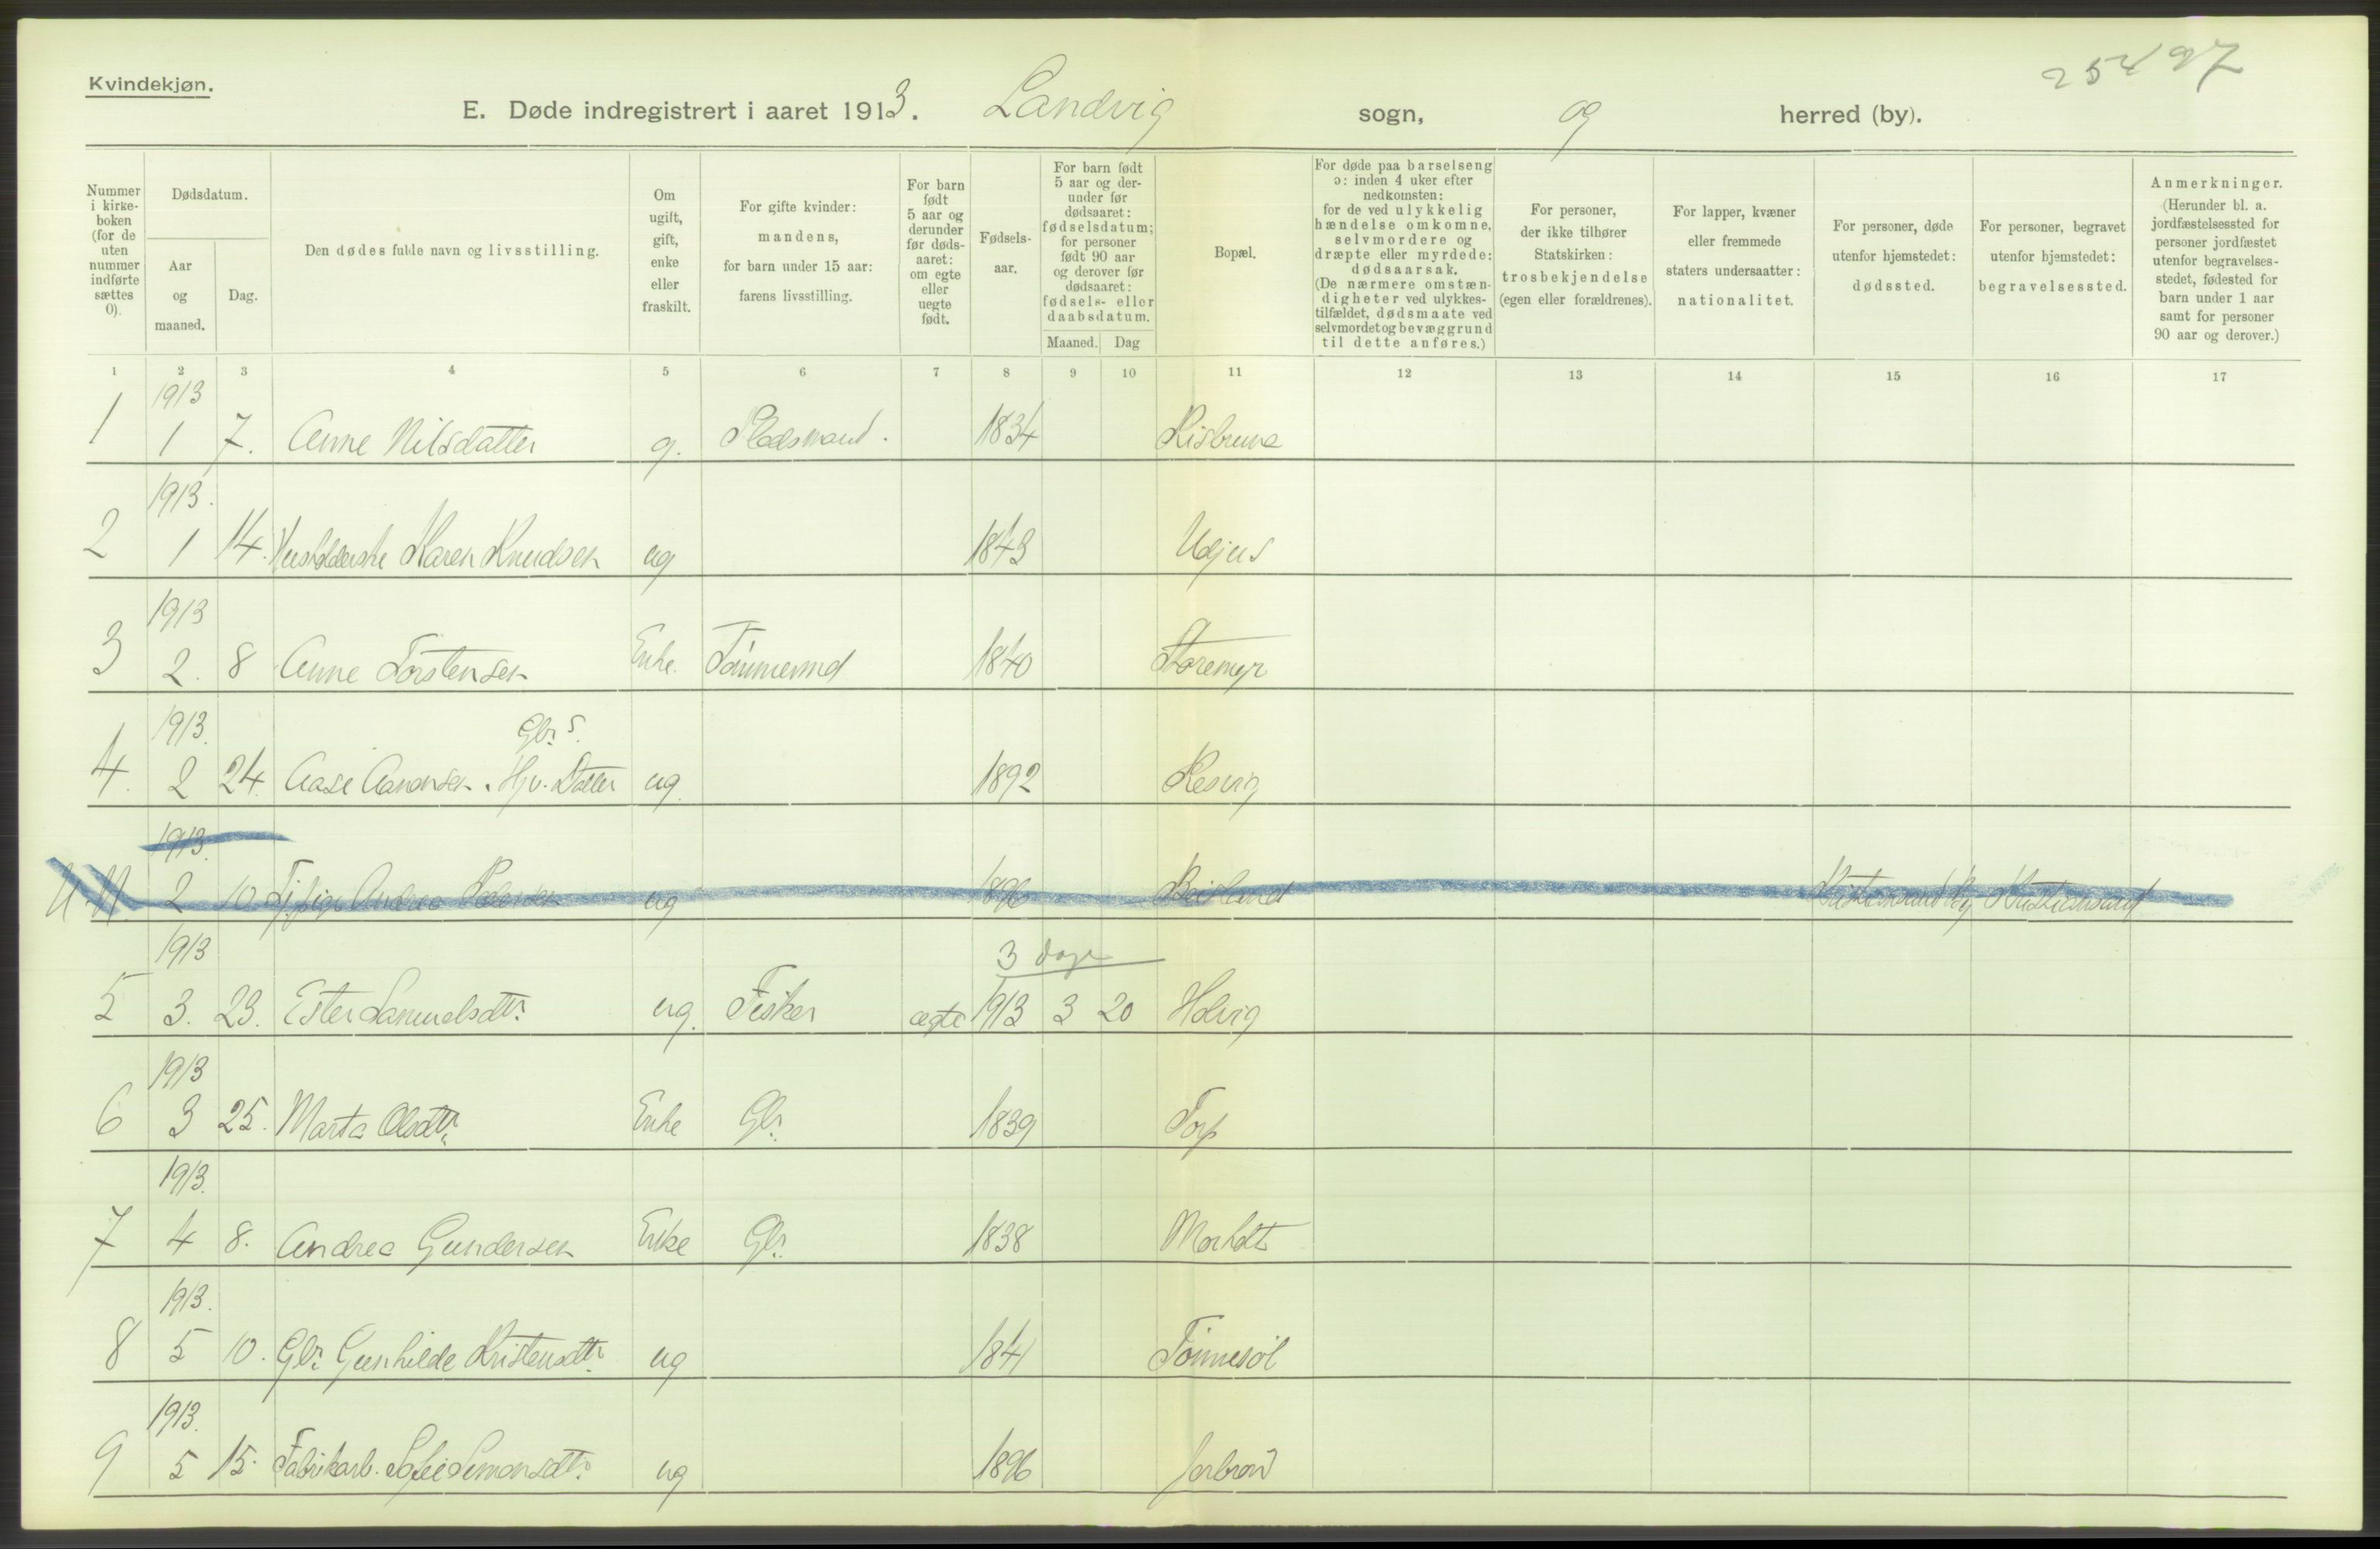 Kvindekjøn.
25497
E. Døde indregistrert i aaret 1913. Landvig sogn, og herred (by).
Nummer i kirkeboken (for de uten nummer indførte sættes 0).
Dødsdatum.
Aar og maaned.
Dag.
Den dødes fulde navn og livsstilling.
Om ugift, gift, enke eller fraskilt.
For gifte kvinder: mandens, for barn under 15 aar: farens livsstilling.
For barn født 5 aar og derunder før dødsaaret: om egte eller uegte født.
Fødselsaar.
For barn født 5 aar og derunder før dødsaaret: fødselsdatum; for personer født 90 aar og derover før dødsaaret: fødsels- eller daabsdatum.
Maaned. Dag
Bopæl.
For døde paa barselseng ɔ: inden 4 uker efter nedkomsten: for de ved ulykkelig hændelse omkomne, selvmordere og dræpte eller myrdede: dødsaarsak. (De nærmere omstændigheter ved ulykkestilfældet, dødsmaate ved selvmordet og bevæggrund til dette anføres.)
For personer, der ikke tilhører Statskirken: trosbekjendelse (egen eller forældrenes).
For lapper, kvæner eller fremmede staters undersaatter: nationalitet.
For personer, døde utenfor hjemstedet: dødssted.
For personer, begravet utenfor hjemstedet: begravelsessted.
Anmerkninger. (Herunder bl. a. jordfæstelsessted for personer jordfæstet utenfor begravelsesstedet, fødested for barn under 1 aar samt for personer 90 aar og derover.)
1 2 3 4 5 6 7 8 9 10 11 12 13 14 15 16 17
1913
1 1 7. Anne Nilsdatter g. Pladsmand. 1834 Risbruna
1913.
2 1 14. Husholderske Karen Knudsen ug 1843 Udjus
1913
3 2. 8 Anne Torstensen Enke. Tømmermd 1840 Storemyr
1913. Gbr s.
4. 2 24. Aase Aanonsen. Hjv. Datter ug. 1892 Resvig
1913.
2 10. Andrea Pedersen ug 1896 Kristiansand By Kristiansand
1913 3 dage
5 3. 23. Ester Samuelsdtr. ug. Fisker ægte 1913 3 20 Holvig
1913
6 3 25. Marta Olsdtr. Enke Gbr. 1839 Torp
1913.
7 4 8. Andrea Gundersen Enke Gbr. 1838 Morholt
1913.
8 5 10. Gbr. Gunhilde Kristensdtr. ug 1841 Tønnesøl
1913.
9 5 15. Fabrikarb. Sofie Simonsdtr. ug 1896